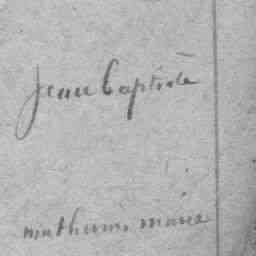 Jean Baptiste
mathurin marie